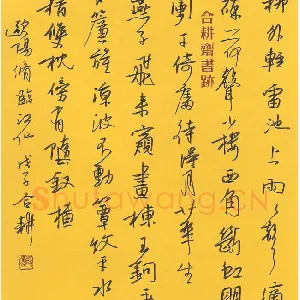 柳外輕雷池上雨々聲滴
碎荷聲小樓西角斷虹明
闌干倚處待得月華生
燕子飛來窺畫棟玉鉤垂
下簾旌涼波不動簟紋平水
精雙枕傍有墮釵橫
歐陽修臨江仙 戊子合耕
合耕齋書跡
Shufawang.CN